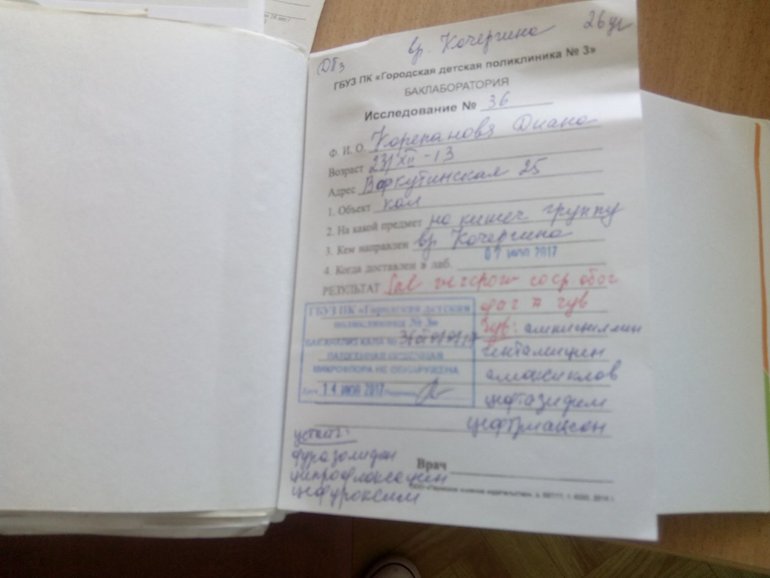 ДБ3
вр. Кочергина
ГБУЗ ПК «Городская детская поликлиника № 3»
БАКЛАБОРАТОРИЯ
Исследование № 36
Ф. И. О. Корепанова Диана
Возраст 23/XII-13
Адрес Воркутинская 25
1. Объект кал
2. На какой предмет на кишеч. группу
3. Кем направлен вр. Кочергина
4. Когда доставлен в лаб. 07 ИЮЛ 2017
РЕЗУЛЬТАТ
ГБУЗ ПК «Городская детская
поликлиника № 3»
БАКАНАЛИЗ КАЛА №
ПАТОГЕННАЯ КИШЕЧНАЯ
МИКРОФЛОРА НЕ ОБНАРУЖЕНА
Дата 14 ИЮЛ 2017
чув: ампициллин
гентамицин
амоксиклав
цефтазидим
цефтриаксон
устойч:
фуразолидон
ципрофлоксацин
цефуроксим
Врач